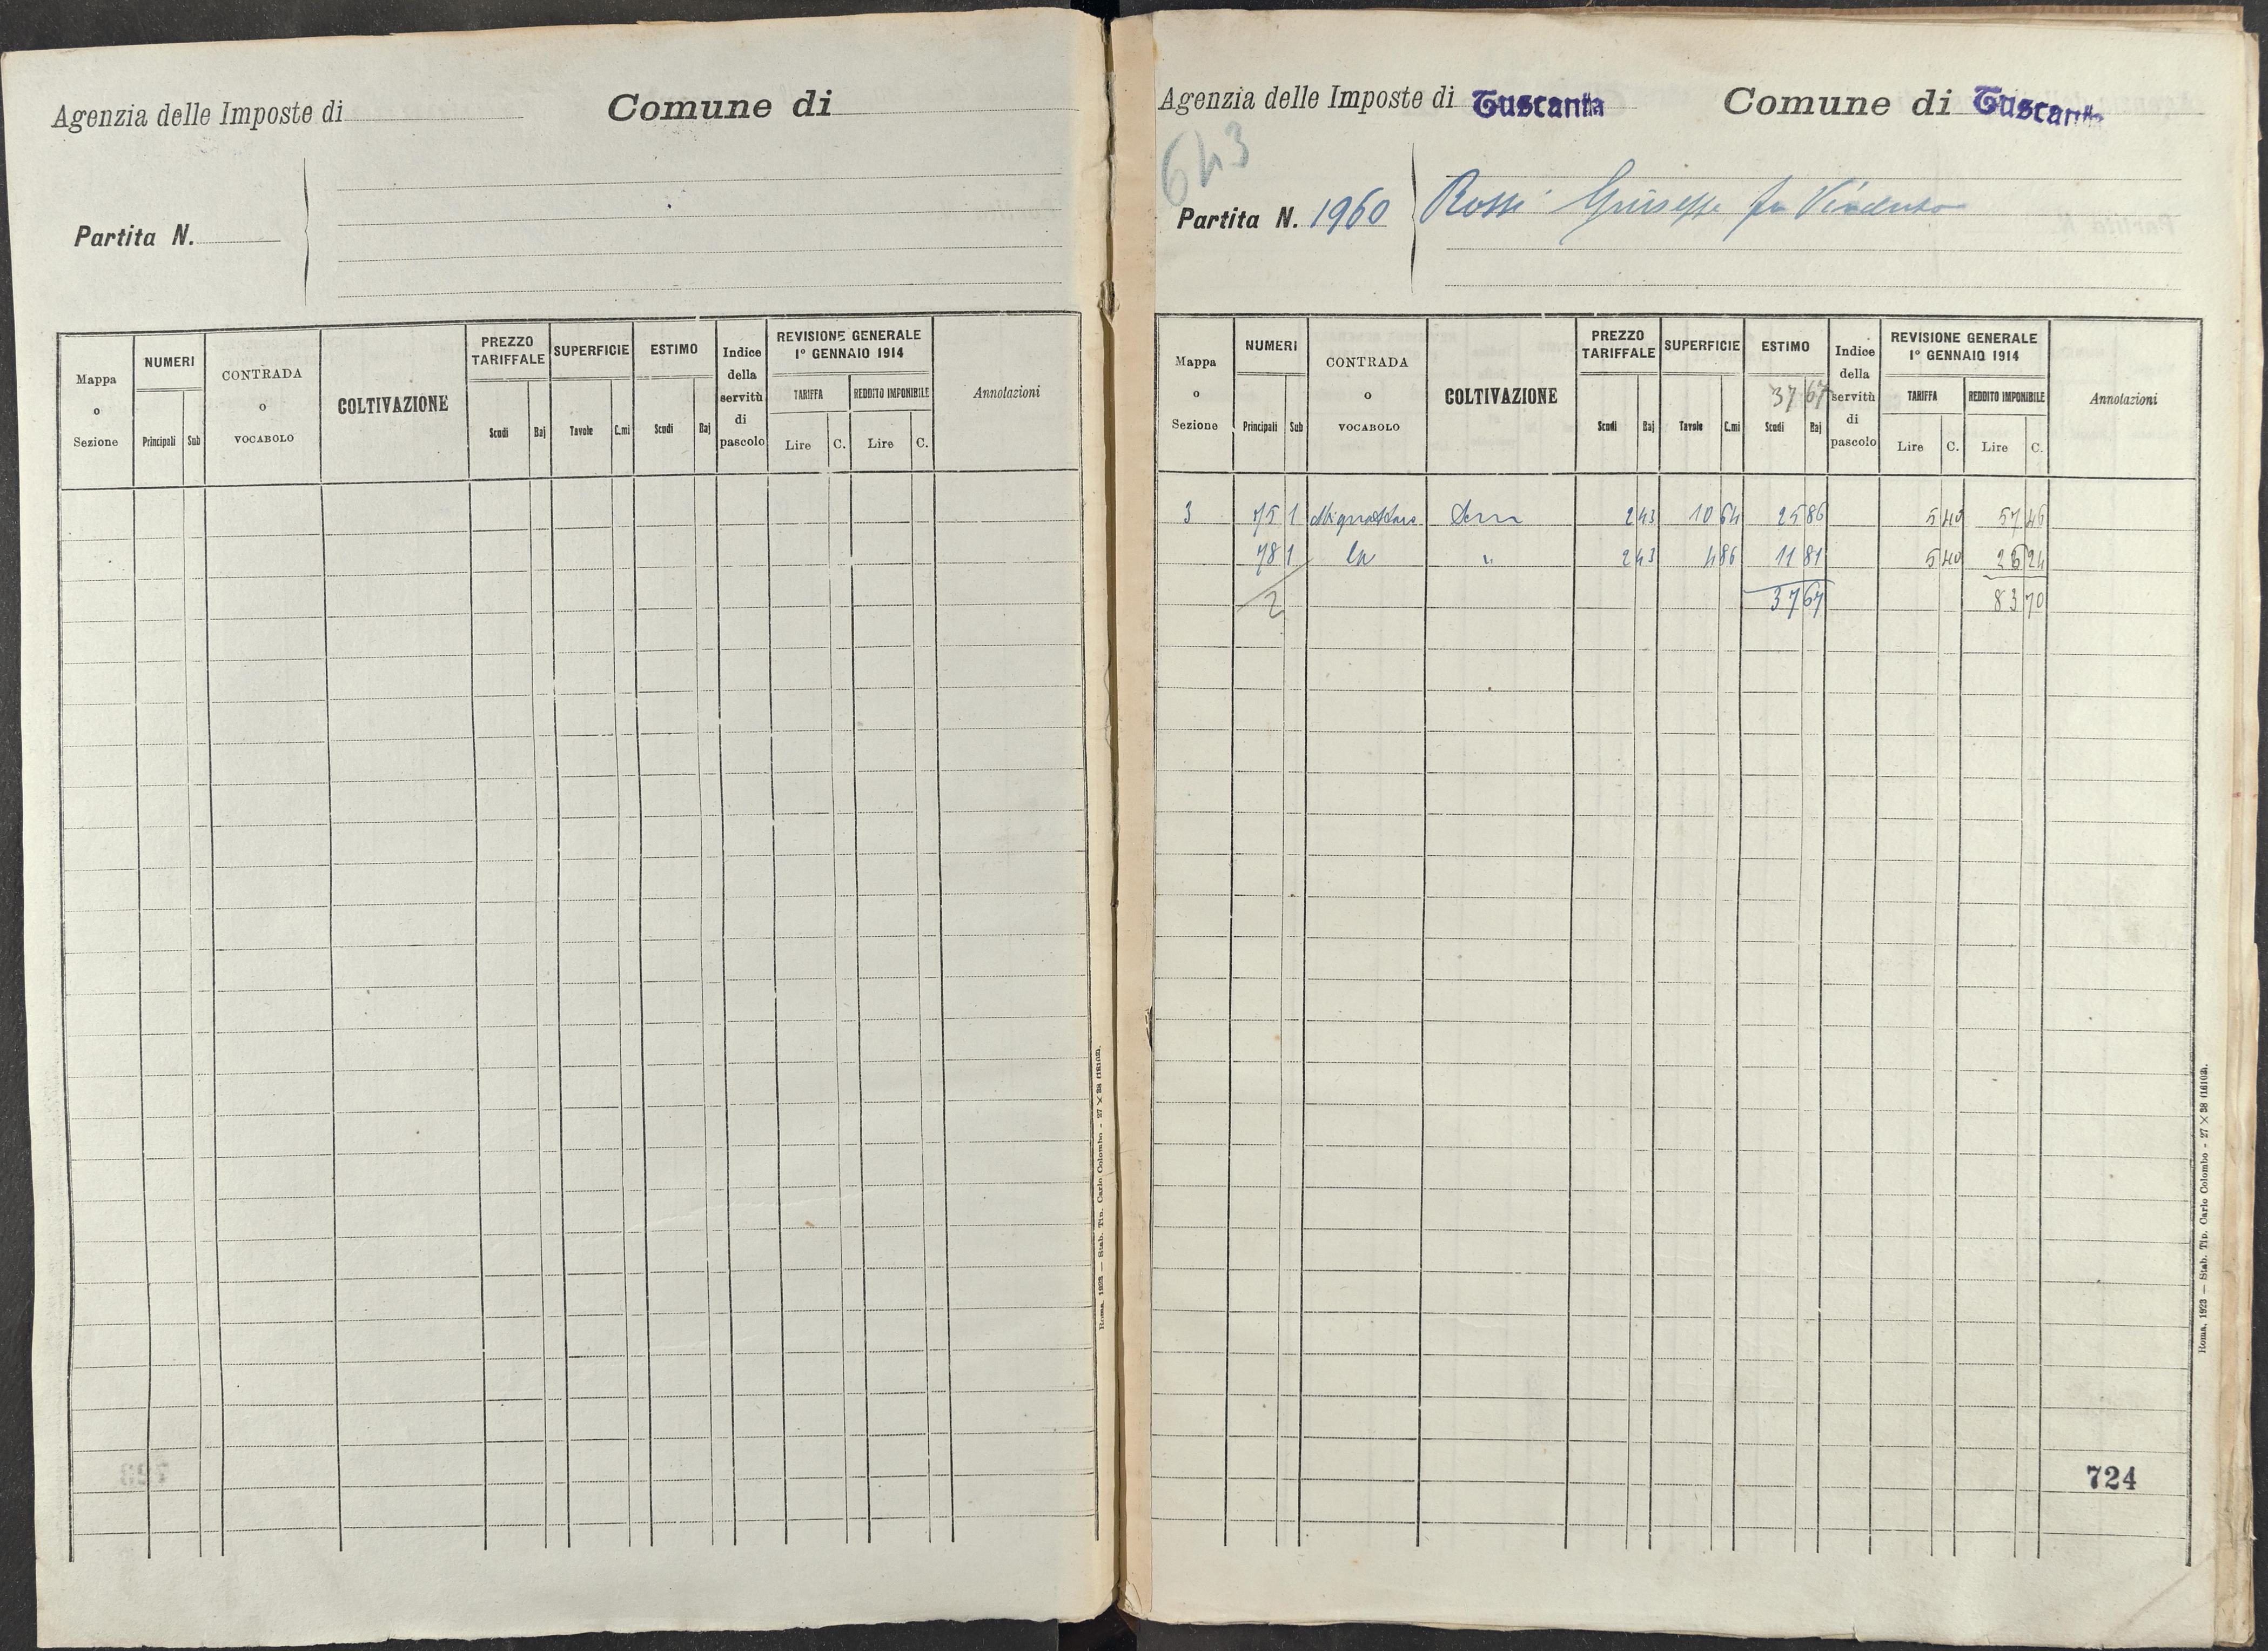 Agenzia delle Imposte di
Comune di
Partita N.
Mappa o Sezione
NUMERI
Principali Sub
CONTRADA o VOCABOLO
COLTIVAZIONE
PREZZO TARIFFALE
Scudi Baj
SUPERFICIE
Tavole C.mi
ESTIMO
Scudi Baj
Indice della servitù di pascolo
REVISIONE GENERALE
1° GENNAIO 1914
TARIFFA
Lire C.
REDDITO IMPONIBILE
Lire C.
Annotazioni
Roma, 1923 — Stab. Tip. Carlo Colombo - 27 × 38 (16103).
Agenzia delle Imposte di Tuscania
Comune di Tuscania
643
Partita N. 1960
Rossi Giuseppe fu Vincenzo
Mappa o Sezione
NUMERI
Principali Sub
CONTRADA o VOCABOLO
COLTIVAZIONE
PREZZO TARIFFALE
Scudi Baj
SUPERFICIE
Tavole C.mi
ESTIMO
37 67
Scudi Baj
Indice della servitù di pascolo
REVISIONE GENERALE
1° GENNAIO 1914
TARIFFA
Lire C.
REDDITO IMPONIBILE
Lire C.
Annotazioni
3 75 1 2 43 10 64 25 86 5 40 57 46
78 1 " 2 43 4 86 11 81 5 40 26 24
2 37 67 83 70
724
Roma, 1923 — Stab. Tip. Carlo Colombo - 27 × 38 (16103).